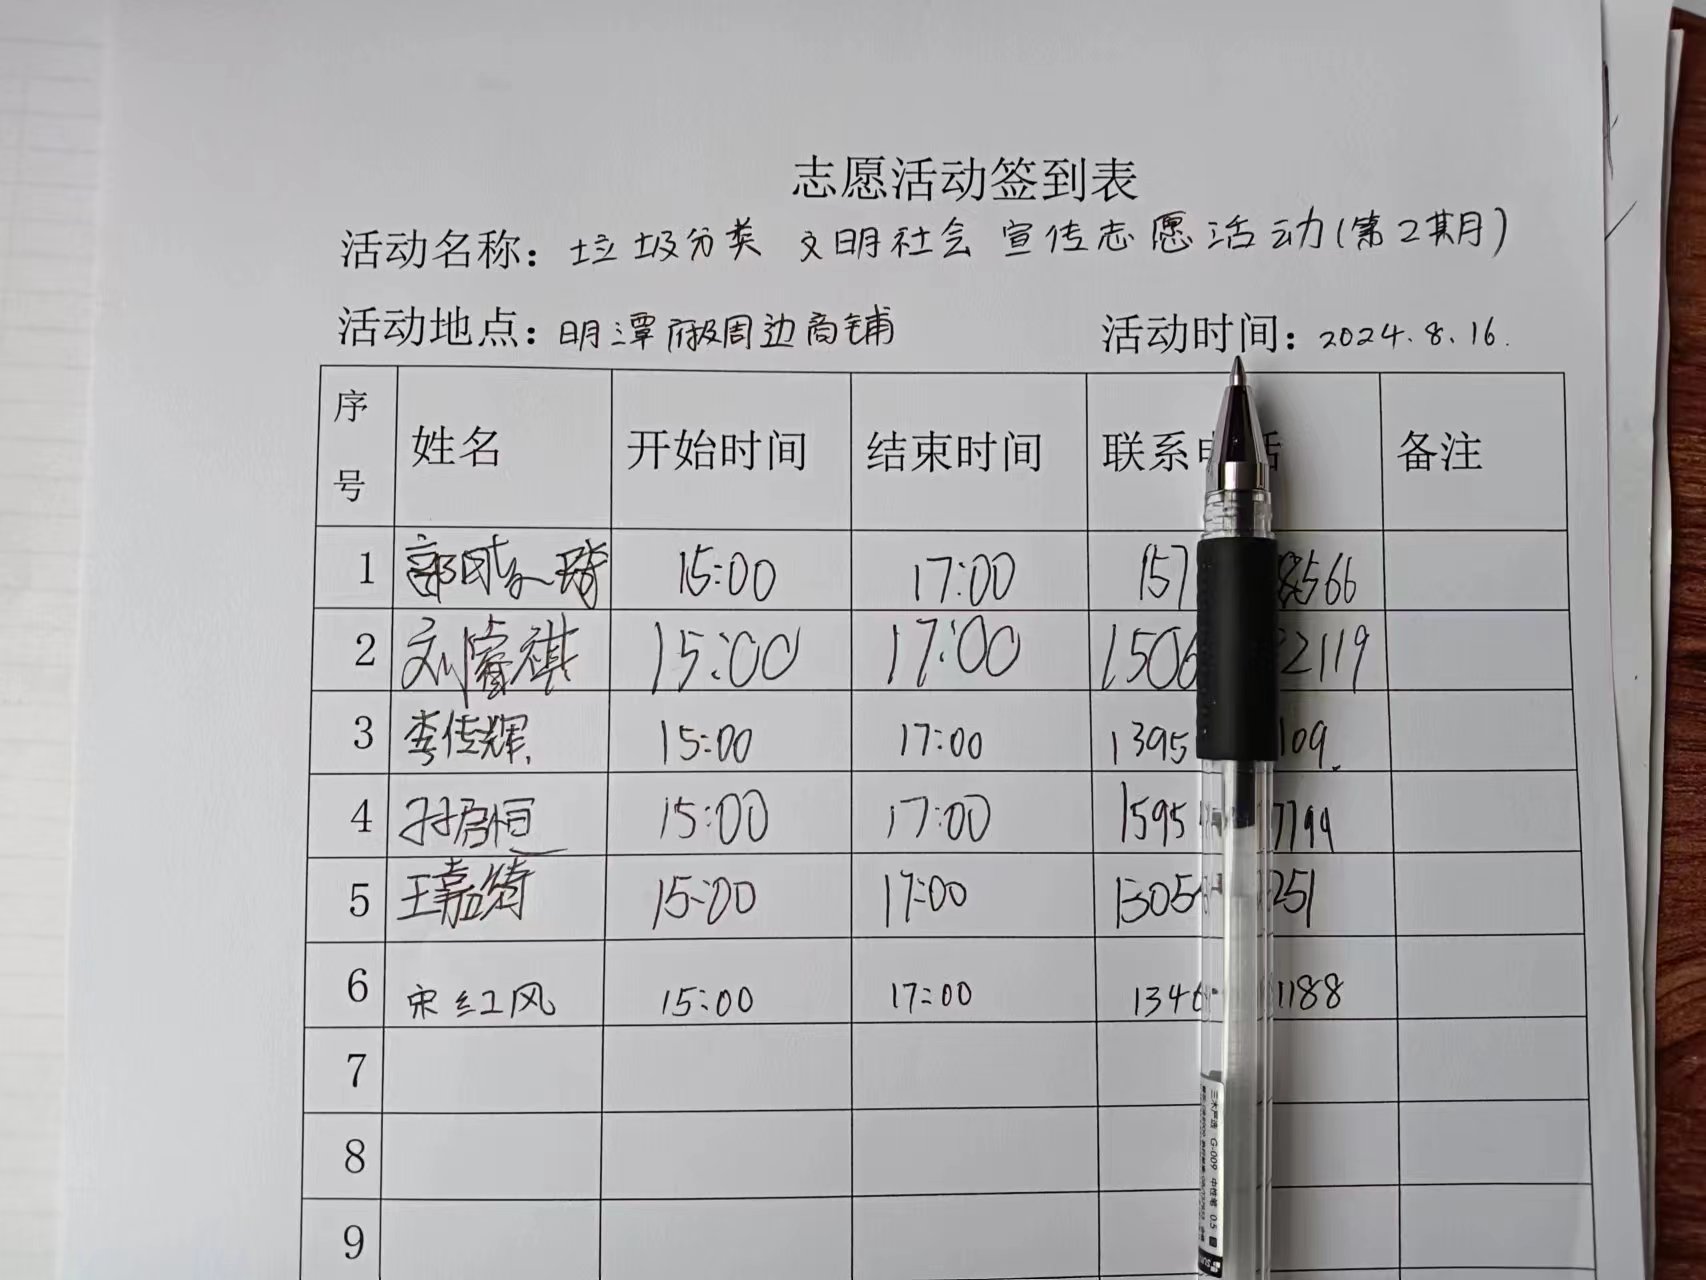 志愿活动签到表
活动名称：垃圾分类 文明社会 宣传志愿活动(第2期)
活动地点：明潭府极周边商铺 活动时间：2024.8.16.
序号 姓名 开始时间 结束时间 联系 备注
1 15:00 17:00 157 8566
2 刘睿祺 15:00 17:00 1506 2119
3 李传辉 15:00 17:00 1395 109
4 15:00 17:00 1595 7199
5 王嘉琦 15:00 17:00 1505 251
6 宋红风 15:00 17:00 1346 1188
7
8
9
G-009 中性笔 0.5